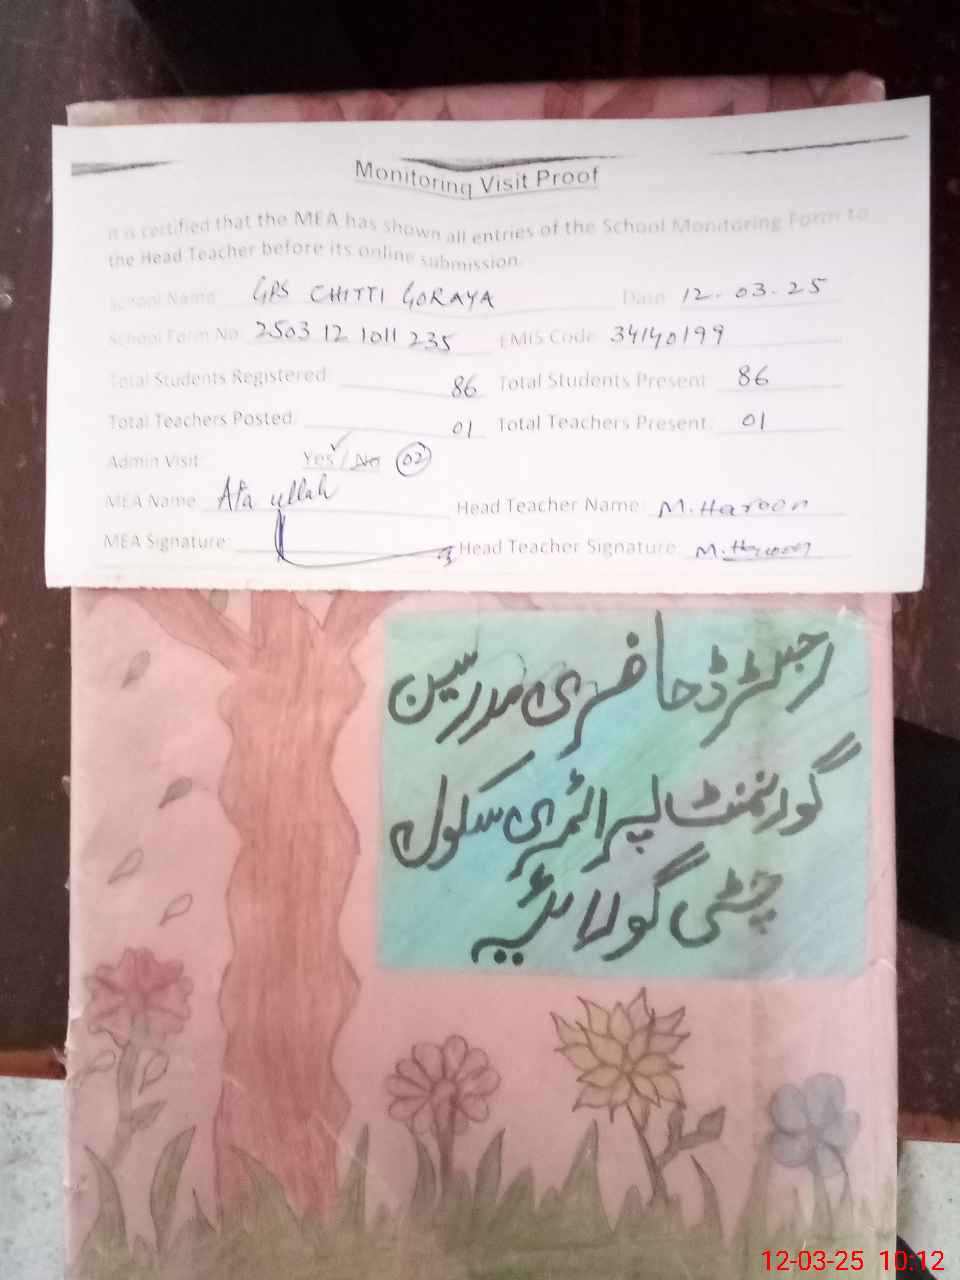 Monitoring Visit Proof
It is certified that the MEA has shown all entries of the School Monitoring Form to
the Head Teacher before its online submission.
School Name: GPS CHITTI GORAYA Date: 12-03-25
School Form No: 2503 12 1011 235 EMIS Code: 34140199
Total Students Registered: 86 Total Students Present: 86
Total Teachers Posted: 01 Total Teachers Present: 01
Admin Visit: Yes / No 02
MEA Name: Ata ullah Head Teacher Name: M. Haroon
MEA Signature: Head Teacher Signature: M. Haroon
رجسٹرڈ حاضری مدرسین
گورنمنٹ پرائمری سکول
چٹی گورائیہ
12-03-25 10:12